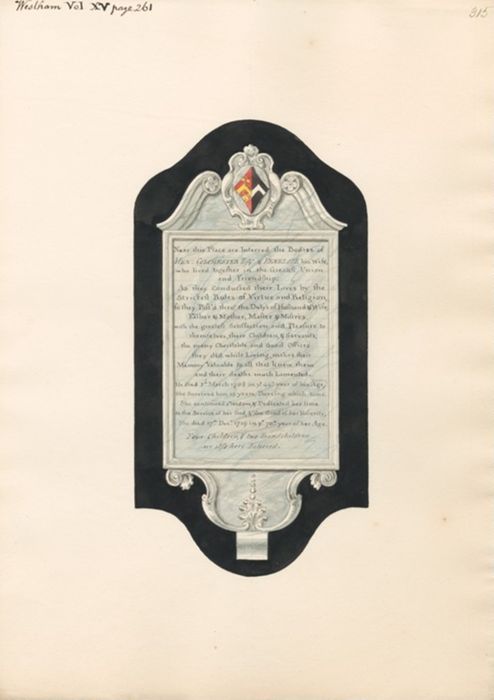 Westham Vol XV page 261
315
Near this Place are Interred the Bodies of
HEN: COLCHESTER Esqr & PENELOPE his Wife,
who lived together in the Greatest Union
and Friendship.
As they Conducted their Lives by the
Strictest Rules of Virtue and Religion,
so they Pass'd thro' the Dutys of Husband & Wife,
Father & Mother, Master & Mistress
with the greatest Satisfaction and Pleasure to
themselves, their Children, & Servants;
the many Charitable and Good Offices
they did whilst Living, makes their
Memory Valuable to all that knew them
and their deaths much Lamented.
He died March in ye year of his Age,
She Survived him years, During which time
She continued a Widow, & Dedicated her time
to the Service of her God, & the Good of her Posterity,
She died 17th Decr 1719 in ye 70th year of her Age.
Four Children, & two Grandchildren
are also here Interred.